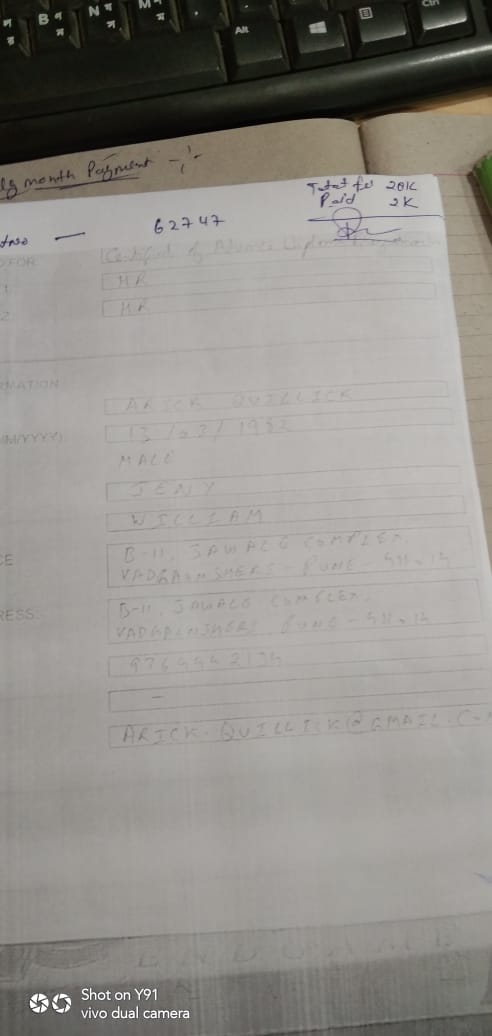 B
N
M
Alt
Ctrl
month Payment -:-
Total fee 20K
Paid 2K
62747
D FOR
Advance Diploma
1 HR
2 HR
RMATION
ARICK QUILLICK
MM/YYYY)
MALE
JENY
WILLIAM
CE
B-11, JAWALE COMPLEX,
VADGAONSHERI - PUNE - 411014
RESS
B-11, JAWALE COMPLEX,
VADGAONSHERI, PUNE - 411014
-
ARICK.QUILLICK@GMAIL.CO
Shot on Y91
vivo dual camera